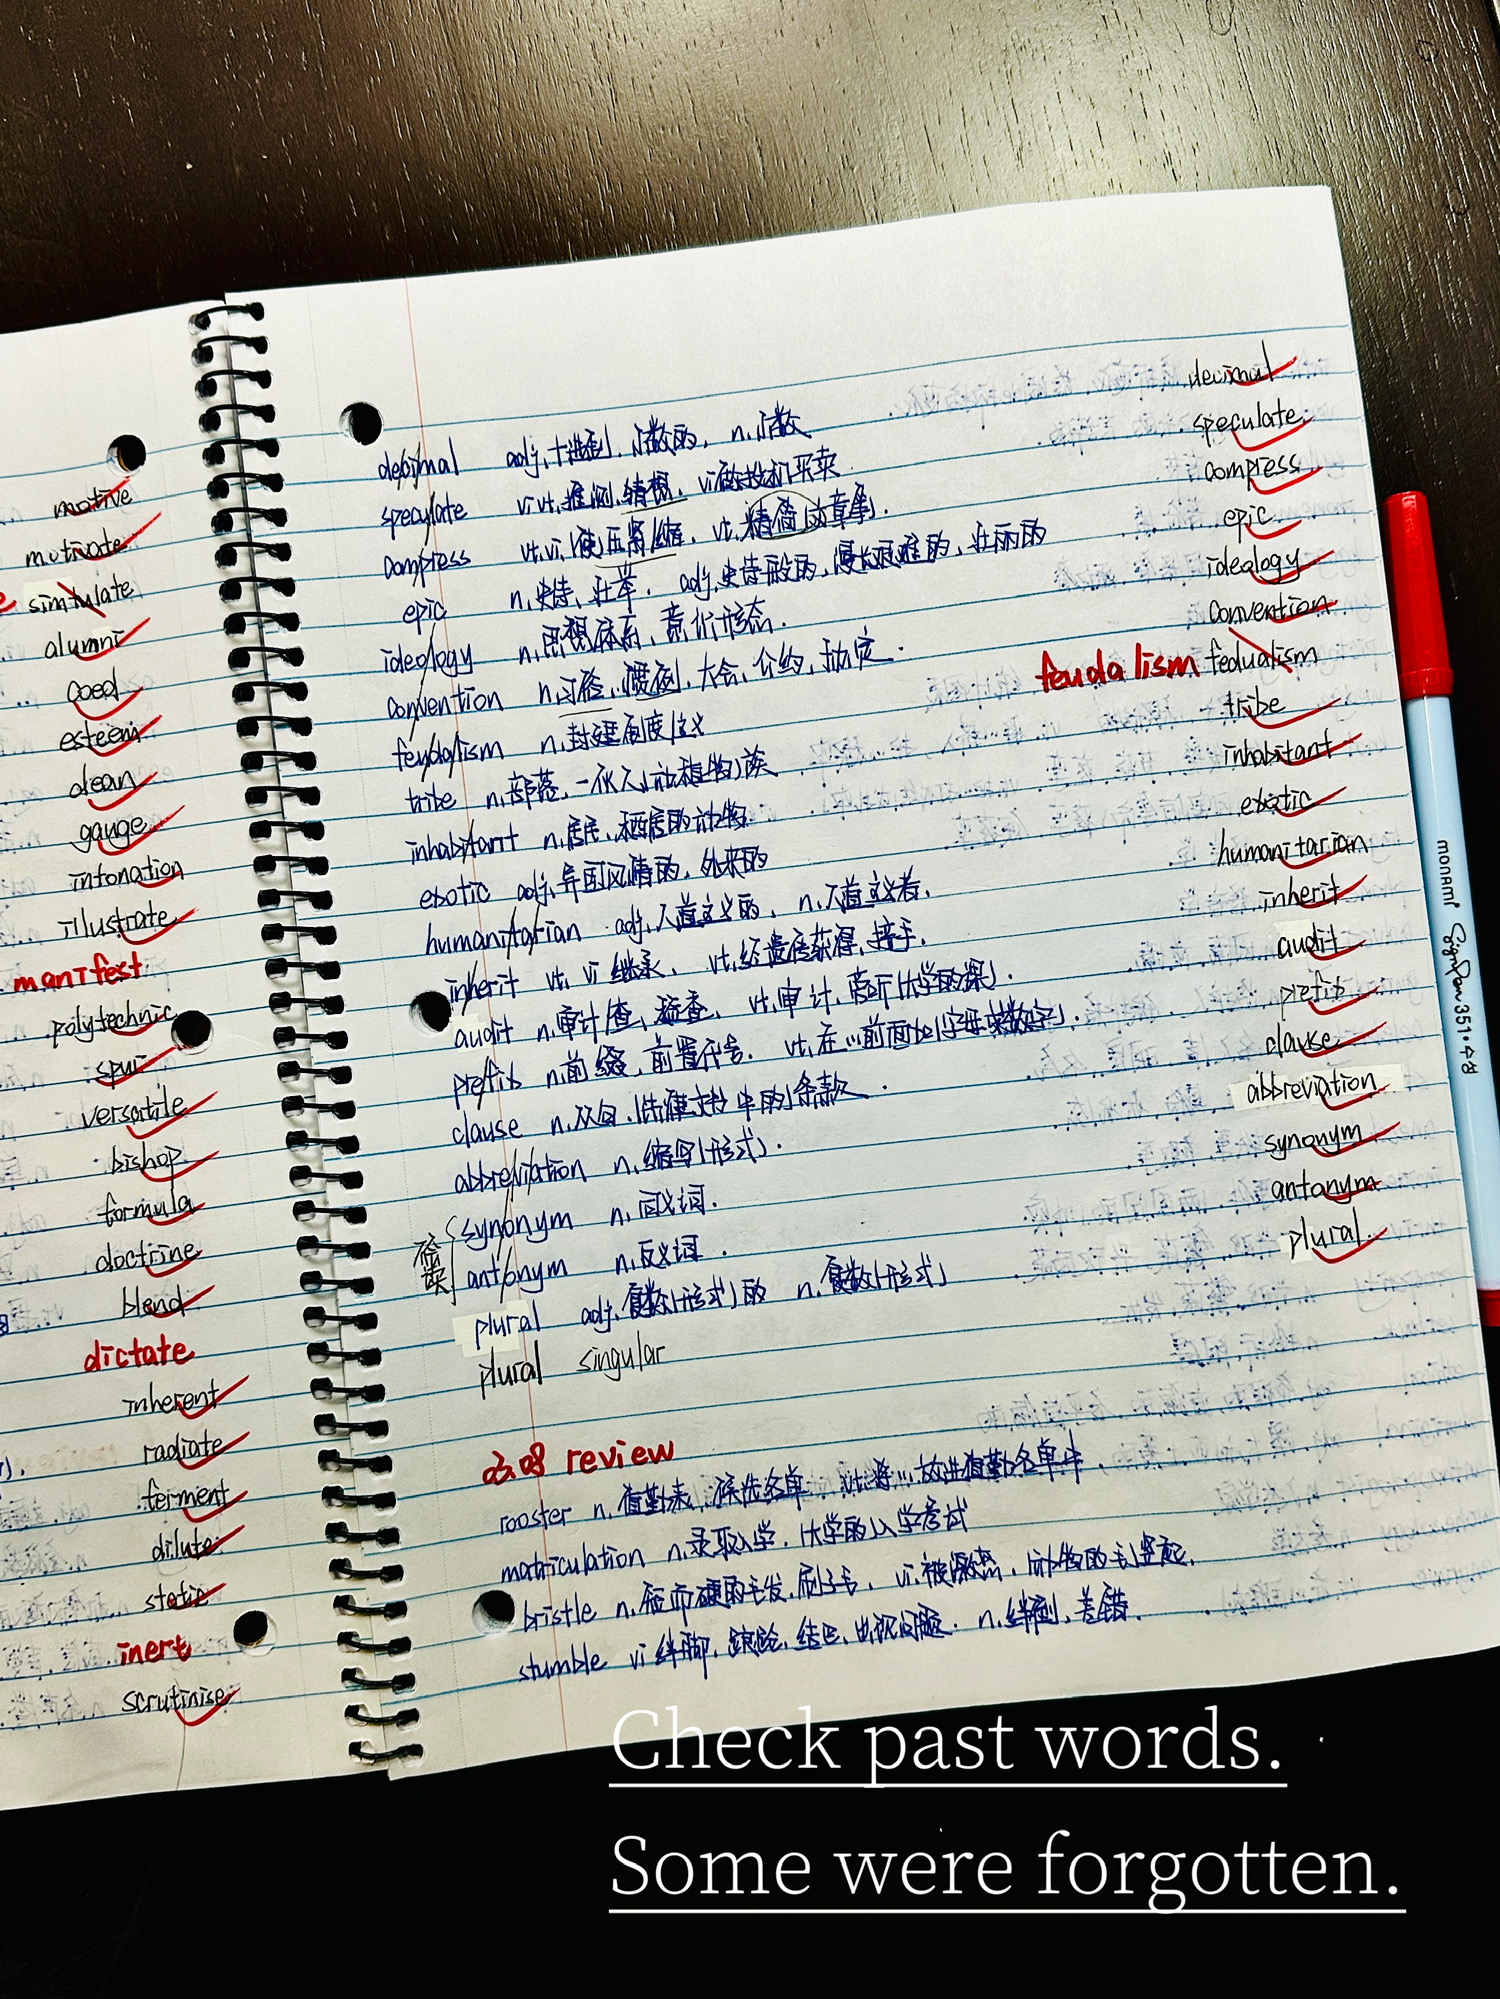 motive
motivate
simulate
alumni
coed
esteem
dean
gauge
intonation
illustrate
manifest
polytechnic
spur
versatile
bishop
formula
doctrine
blend
dictate
inherent
radiate
ferment
dilute
static
inert
scrutinise
decimal adj. 十进制, 小数的, n. 小数
speculate vi vt. 推测, 猜想, vi 做投机买卖
compress vt. vi. (使)压紧/缩, vt. 精简(文章等).
epic n. 史诗, 壮举, adj. 史诗般的, 漫长艰难的, 壮丽的
ideology n. 思想体系, 意识形态.
convention n. 习俗, 惯例, 大会, 公约, 协定.
feudalism n. 封建制度/主义
tribe n. 部落, 一伙人, (动植物)族
inhabitant n. 居民, 栖居的动物
exotic adj. 异国风情的, 外来的
humanitarian adj. 人道主义的, n. 人道主义者.
inherit vt. vi 继承, vt. 经遗传获得, 接手.
audit n. 审计/查, 稽查, vt. 审计, 旁听(大学的课).
prefix n. 前缀, 前置代号. vt. 在...前面加(字母或数字).
clause n. 从句, (法律文书中的)条款.
abbreviation n. 缩写(形式).
synonym n. 同义词.
antonym n. 反义词.
plural adj. 复数(形式)的 n. 复数(形式)
plural singular
03.08 review
rooster n. 值勤表, 候选名单 vt. 将...放进值勤名单中.
matriculation n. 录取入学, (大学的)入学考试
bristle n. 短而硬的毛发, 刷子毛, vi. 被激怒, (动物的毛)竖起.
stumble vi 绊脚, 踉跄, 结巴, 出现问题. n. 绊倒, 差错.
decimal
speculate
compress
epic
ideology
convention
feudalism fedualism
tribe
inhabitant
exotic
humanitarian
inherit
audit
prefix
clause
abbreviation
synonym
antonym
plural
monami SignPen 351·수성
Check past words.
Some were forgotten.